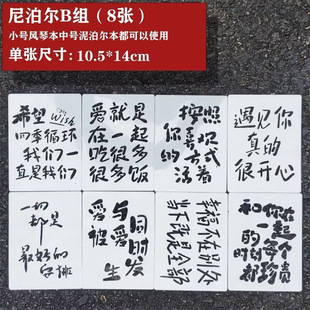 尼泊尔B组（8张）
小号风琴本中号泥泊尔本都可以使用
单张尺寸：10.5*14cm
希望
Wish
四季循环
我们一
直是我们
爱就是
在一起
吃很多
很多饭
按照
你喜欢
的方式
活着
遇见你
真的
很开心
一切
都是
最好的
安排
爱与
被爱
同时发
生
幸福不在别处
当下就是全部
和你在
一起
的每个
时刻
都珍贵